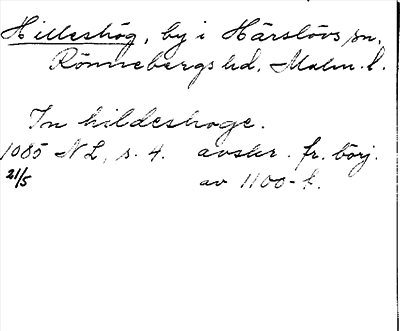 Hilleshög, by i Härslövs sn.
Rönnebergs hd. Malm. l.
In hildeshoge.
1085 NL, s. 4. avskr. fr. börj.
21/5 av 1100-t.